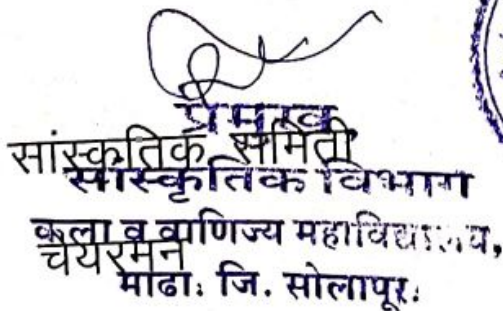 प्रमुख
सांस्कृतिक समिती
सांस्कृतिक विभाग
कला व वाणिज्य महाविद्यालय,
चेयरमन
माढा. जि. सोलापूर.